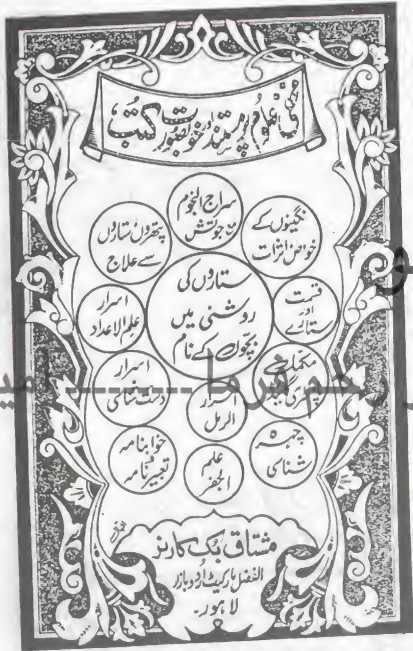 مخفی علوم پر مستند خوبصورت کتب
سراج النجوم
جوتش
نگینوں کے
خواص اثرات
پتھروں ستاروں
سے علاج
ستاروں کی
روشنی میں
بچوں کے نام
قسمت
اور
ستارے
اسرار
علم الاعداد
مکمل
اسرار
دست شناسی
اسرار
الرمل
چہرہ
شناسی
خوابنامہ
تعبیر نامہ
علم
الجفر
مشتاق بک کارنر
الفضل مارکیٹ اردو بازار
لاہور۔
رحم فرما ---------- امی